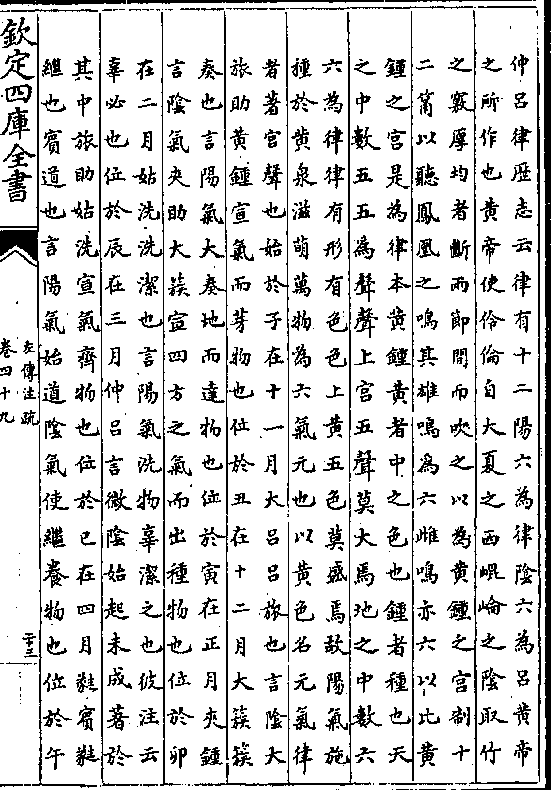 仲呂律歴志云律有十二陽六為律隂六為呂黄帝
之所作也黄帝使伶倫自大夏之西崐崘之隂取竹
之竅厚均者斷兩節間而吹之以為黄鍾之宫制十
二筩以聽鳳凰之鳴其雄鳴為六雌鳴亦六以比黄
鍾之宫是為律本黄鍾黄者中之色也鍾者種也天
之中數五五為聲聲上宫五聲莫大焉地之中數六
六為律律有形有色色上黄五色莫盛焉故陽氣施
種於黄泉滋萌萬物為六氣元也以黄色名元氣律
者著宫聲也始於子在十一月大呂呂旅也言隂大
旅助黄鍾宣氣而芽物也位於丑在十二月大簇簇
奏也言陽氣大奏地而達物也位於寅在正月夾鍾
言隂氣夾助大簇宣四方之氣而出種物也位於卯
在二月姑洗洗潔也言陽氣洗物辜潔之也彼注云
辜必也位於辰在三月仲呂言微隂始起未成著於
其中旅助姑洗宣氣齊物也位於巳在四月蕤賓蕤
繼也賓道也言陽氣始道隂氣使繼養物也位於午
欽定四庫全書
左傳注疏
卷四十九
二十三